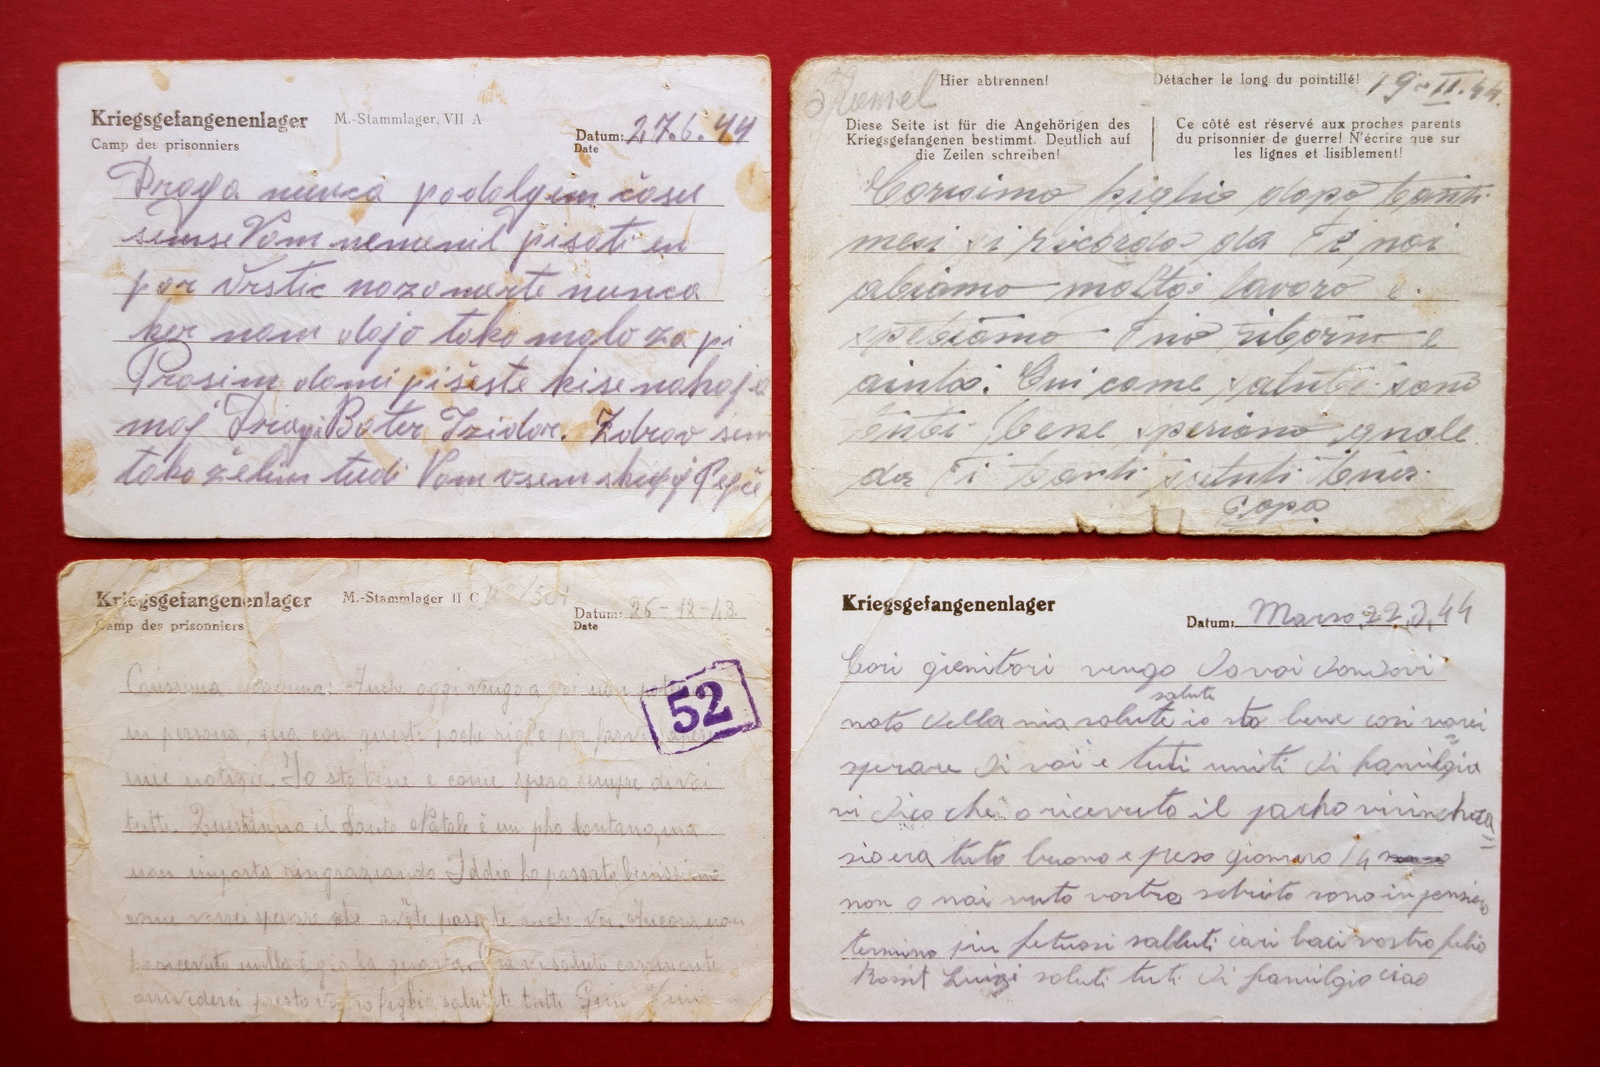 Kriegsgefangenenlager M.-Stammlager, VII A
Camp des prisonniers
Datum: 27.6.44
Date
Draga nunca po dolgem času
sem se Vam nemenil pisati en
par vrstic nazamerte nunca
ker nam dajo tako malo za pi
Prosim dami pišeste kise nahaja
moj Dragi Boter Izidor. Zdrav sem
tako želim tudi Vam vsem skupaj Pepče
Hier abtrennen! Détacher le long du pointillé! 19-II.44.
Diese Seite ist für die Angehörigen des
Kriegsgefangenen bestimmt. Deutlich auf
die Zeilen schreiben!
Ce côté est réservé aux proches parents
du prisonnier de guerre! N'écrire que sur
les lignes et lisiblement!
Carisimo figlio dopo tanti
mesi si ricorda da Te, noi
abiamo molto lavoro e
spetiamo Tuo ritorno e
aiuto. Qui come salute sono
tuti bene speriamo quale
da Ti tanti saluti tuo
Papa
Kriegsgefangenenlager M.-Stammlager II C
Camp des prisonniers
Datum: 26-12-43
Date
Carissima Mamma: Anche oggi vengo a voi non
in persona, ma con queste poche righe per farvi
mie notizie. Io sto bene e come spero sempre di voi
tutti. Quest'anno il Santo Natale è un pho lontano, ma
non importa ringraziando Iddio ho passato benissimo
come vorrei sperare che avete passate anche voi. Ancora non
ho ricevuto nulla Vi saluto caramente
arrivederci presto vostro figlio saluti tutti
52
Kriegsgefangenenlager
Datum: Marso, 22,3,44
Cari gienitori vengo da voi dandovi
nota della mia salute io sto bene cosi vorei
salute
sperare di voi e tuti uniti di familgia
vi dico che o ricevuto il pacho vi rinchrazia
sio era tuto buono e peso giomoro 14
non o mai vuto vostro scrito sono in pensiero
termino piu fetuosi salluti cari baci vostro filio
Luigi saluti tuti di familgia ciao